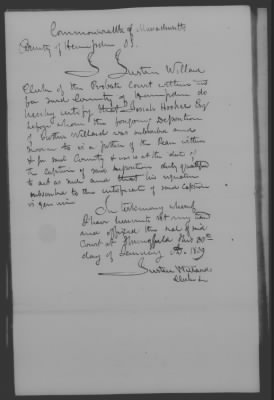 Commonwealth of Massachusetts
County of Hampden SS.
I Justin Willard
Clerk of the Probate Court within and
for said County of Hampden do
hereby certify that Josiah Hooker Esq
before whom the foregoing deposition
of Willard was subscribed and
sworn to is a Justice of the Peace within
& for said County & was at the date of
the caption of said deposition duly qualified
to act as such and that his signature
subscribed to the certificate of said caption
is genuine
In testimony whereof
I have hereunto set my hand
and affixed the seal of said
Court at Springfield this 30th
day of January A.D. 1839
Justin Willard
Clerk